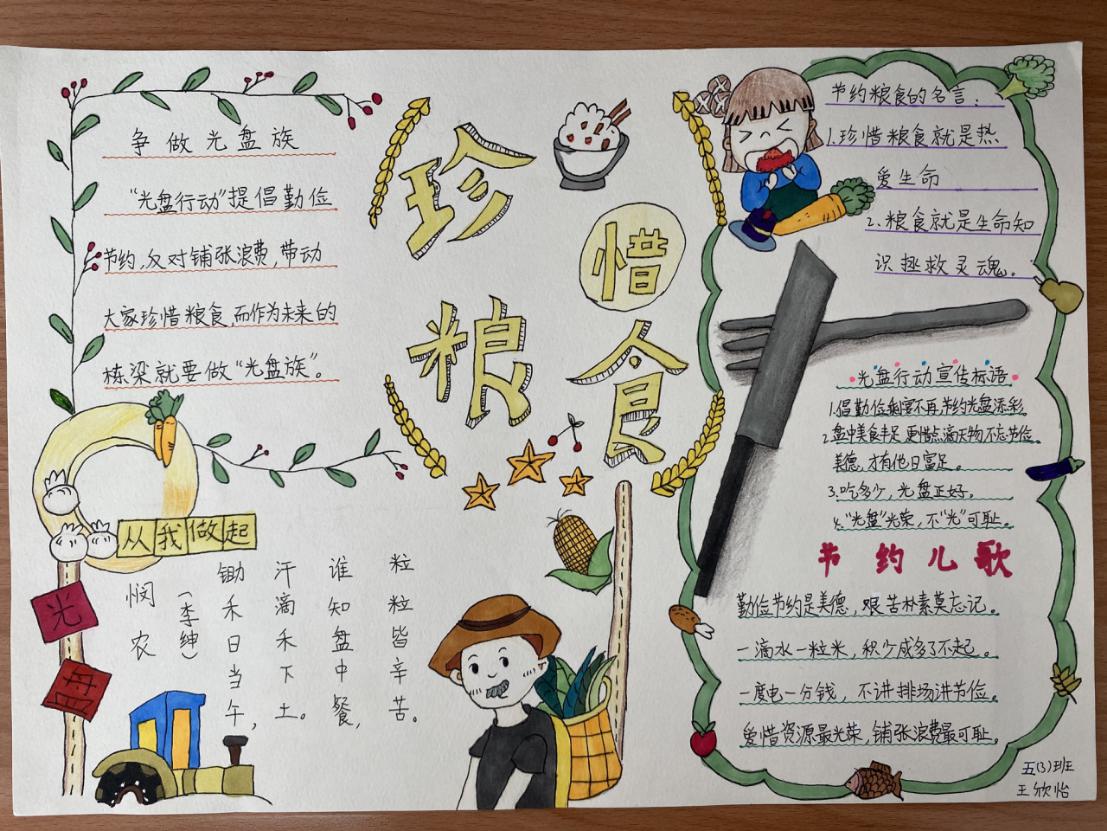 珍惜粮食
争做光盘族
“光盘行动”提倡勤俭
节约，反对铺张浪费，带动
大家珍惜粮食，而作为未来的
栋梁就要做“光盘族”。
从我做起
光盘
悯农
（李绅）
锄禾日当午，
汗滴禾下土。
谁知盘中餐，
粒粒皆辛苦。
节约粮食的名言：
1.珍惜粮食就是热
爱生命
2.粮食就是生命知
识拯救灵魂。
光盘行动宣传标语
1.倡勤俭剩宴不再，节约光盘添彩
2.盘中美食丰足，更惜点滴天物，不忘节俭
美德，才有他日富足。
3.吃多少，光盘正好。
4.“光盘”光荣，不“光”可耻。
节约儿歌
勤俭节约是美德，艰苦朴素莫忘记。
一滴水一粒米，积少成多了不起。
一度电一分钱，不讲排场讲节俭。
爱惜资源最光荣，铺张浪费最可耻。
五(3)班
王欣怡